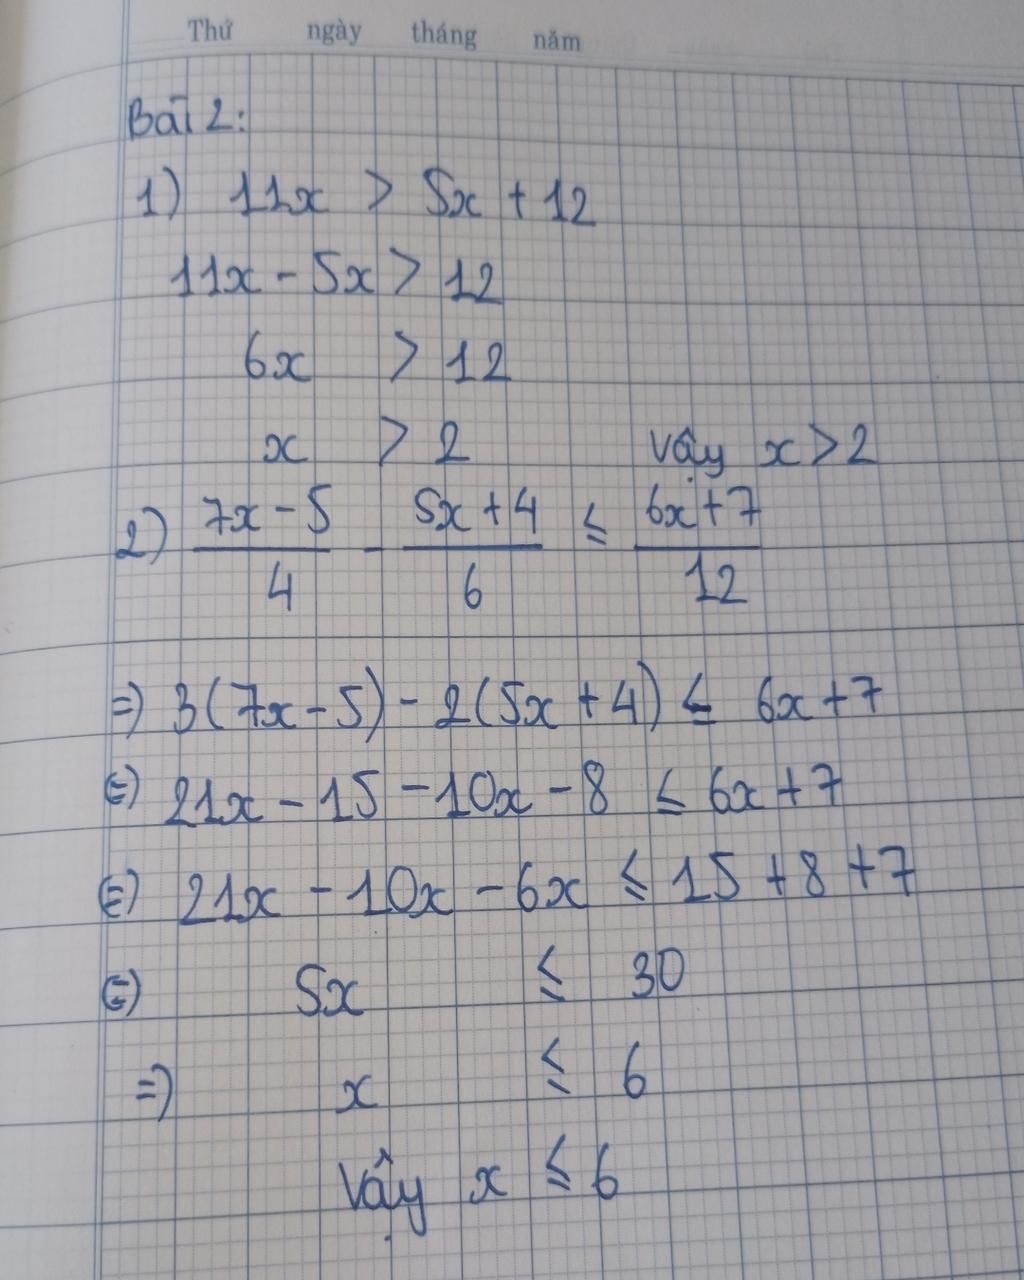 Thứ ngày tháng năm
Bài 2:
1) 11x > 5x + 12
11x - 5x > 12
6x > 12
x > 2 Vậy x > 2
2) (7x - 5)/4 - (5x + 4)/6 ≤ (6x + 7)/12
=> 3(7x - 5) - 2(5x + 4) ≤ 6x + 7
(=) 21x - 15 - 10x - 8 ≤ 6x + 7
(=) 21x - 10x - 6x ≤ 15 + 8 + 7
(=) 5x ≤ 30
=> x ≤ 6
Vậy x ≤ 6